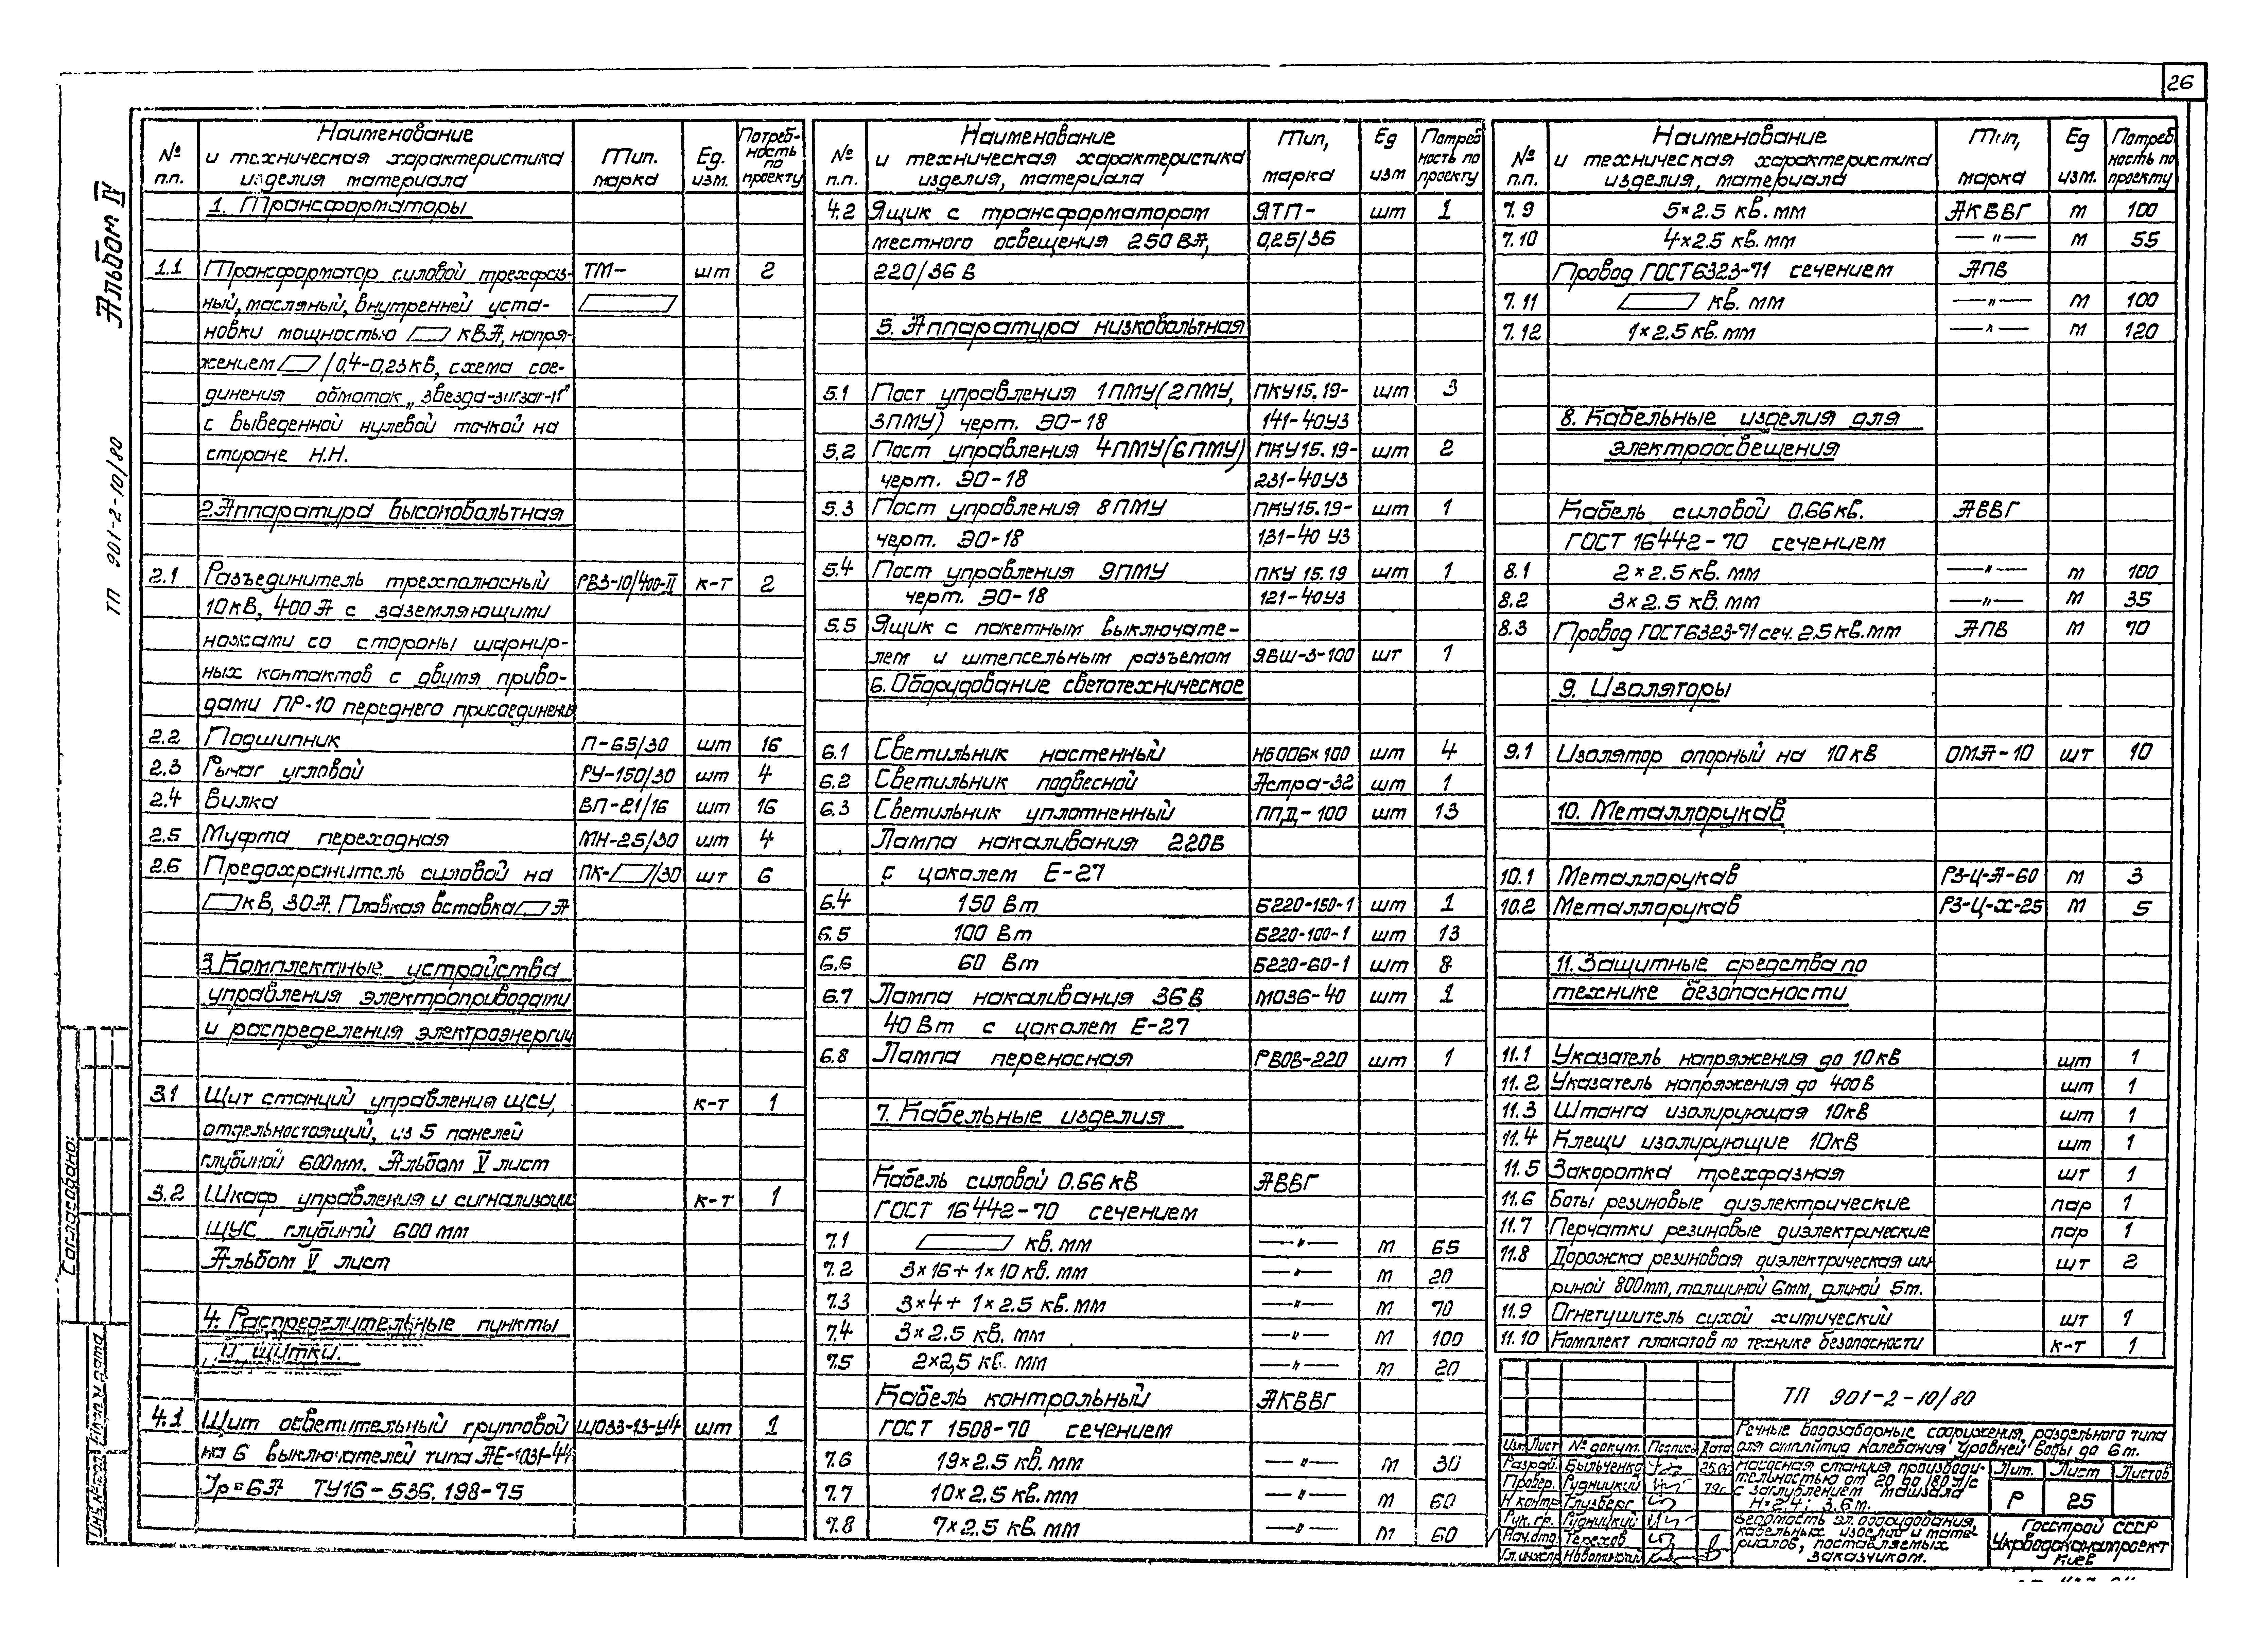 26
Альбом IV
ТП 901-2-10/80
№ п.п. | Наименование и техническая характеристика изделия материала | Тип. марка | Ед. изм. | Потреб-ность по проекту
1. Трансформаторы
1.1 Трансформатор силовой трехфаз- ТМ- шт 2
ный, масляный, внутренней уста-
новки мощностью кВА, напря-
жением /0,4-0,23кВ, схема сое-
динения обмоток „звезда-зигзаг-11"
с выведенной нулевой точкой на
стороне Н.Н.
2. Аппаратура высоковольтная
2.1 Разъединитель трехполюсный РВЗ-10/400-II к-т 2
10кВ, 400А с заземляющими
ножами со стороны шарнир-
ных контактов с двумя приво-
дами ПР-10 переднего присоединения
2.2 Подшипник П-65/30 шт 16
2.3 Рычаг угловой РУ-150/30 шт 4
2.4 Вилка ВП-21/16 шт 16
2.5 Муфта переходная МН-25/30 шт 4
2.6 Предохранитель силовой на ПК- /30 шт 6
кВ, 30А. Плавкая вставка А
3. Комплектные устройства
управления электроприводами
и распределения электроэнергии
3.1 Щит станций управления ЩСУ, к-т 1
отдельностоящий, из 5 панелей
глубиной 600мм. Альбом V лист
3.2 Шкаф управления и сигнализации к-т 1
ШУС глубиной 600 мм
Альбом V лист
4. Распределительные пункты
и щитки.
4.1 Щит осветительный групповой ЩО33-13-У4 шт 1
на 6 выключателей типа АЕ-1031-44
Iр=6А ТУ16-536.198-75
№ п.п. | Наименование и техническая характеристика изделия, материала | Тип, марка | Ед изм | Потреб ность по проекту
4.2 Ящик с трансформатором ЯТП- шт 1
местного освещения 250 ВА, 0,25/36
220/36 В
5. Аппаратура низковольтная
5.1 Пост управления 1ПМУ(2ПМУ, ПКУ15.19- шт 3
3ПМУ) черт. ЭО-18 141-40У3
5.2 Пост управления 4ПМУ(6ПМУ) ПКУ15.19- шт 2
черт. ЭО-18 231-40У3
5.3 Пост управления 8ПМУ ПКУ15.19- шт 1
черт. ЭО-18 131-40 У3
5.4 Пост управления 9ПМУ ПКУ 15.19 шт 1
черт. ЭО-18 121-40У3
5.5 Ящик с пакетным выключате-
лем и штепсельным разъемом ЯВШ-3-100 шт 1
6. Оборудование светотехническое
6.1 Светильник настенный НБ006х100 шт 4
6.2 Светильник подвесной Астра-32 шт 1
6.3 Светильник уплотненный ППД-100 шт 13
Лампа накаливания 220В
с цоколем Е-27
6.4 150 Вт Б220-150-1 шт 1
6.5 100 Вт Б220-100-1 шт 13
6.6 60 Вт Б220-60-1 шт 8
6.7 Лампа накаливания 36В МО36-40 шт 1
40 Вт с цоколем Е-27
6.8 Лампа переносная РВОВ-220 шт 1
7. Кабельные изделия
Кабель силовой 0.66 кВ АВВГ
ГОСТ 16442-70 сечением
7.1 кв. мм —"— м 65
7.2 3×16+1×10 кв. мм —"— м 20
7.3 3×4+1×2.5 кв. мм —"— м 70
7.4 3×2.5 кв. мм —"— м 100
7.5 2×2,5 кв. мм —"— м 20
Кабель контрольный АКВВГ
ГОСТ 1508-70 сечением
7.6 19×2.5 кв. мм —"— м 30
7.7 10×2.5 кв.мм —"— м 60
7.8 7×2.5 кв. мм —"— м 60
№ п.п. | Наименование и техническая характеристика изделия, материала | Тип, марка | Ед изм. | Потреб ность по проекту
7.9 5×2.5 кв. мм АКВВГ м 100
7.10 4×2.5 кв. мм —"— м 55
Провод ГОСТ6323-71 сечением АПВ
7.11 кв. мм —"— м 100
7.12 1×2.5 кв. мм —"— м 120
8. Кабельные изделия для
электроосвещения
Кабель силовой 0.66 кв. АВВГ
ГОСТ 16442-70 сечением
8.1 2×2.5 кв. мм —"— м 100
8.2 3×2.5 кв. мм —"— м 35
8.3 Провод ГОСТ6323-71 сеч. 2.5 кв.мм АПВ м 70
9. Изоляторы
9.1 Изолятор опорный на 10 кВ ОМА-10 шт 10
10. Металлорукав
10.1 Металлорукав РЗ-Ц-А-60 м 3
10.2 Металлорукав РЗ-Ц-Х-25 м 5
11. Защитные средства по
технике безопасности
11.1 Указатель напряжения до 10кВ шт 1
11.2 Указатель напряжения до 400В шт 1
11.3 Штанга изолирующая 10кВ шт 1
11.4 Клещи изолирующие 10кВ шт 1
11.5 Закоротка трехфазная шт 1
11.6 Боты резиновые диэлектрические пар 1
11.7 Перчатки резиновые диэлектрические пар 1
11.8 Дорожка резиновая диэлектрическая ши- шт 2
риной 800мм, толщиной 6мм, длиной 5м.
11.9 Огнетушитель сухой химический шт 1
11.10 Комплект плакатов по технике безопасности к-т 1
ТП 901-2-10/80
Речные водозаборные сооружения раздельного типа
для амплитуд колебания уровней воды до 6 м.
Изм Лист № докум. Подпись Дата
Разраб. Быльченко
Провер. Рудницкий
Н.контр. Глузберг
Рук. гр. Рудницкий
Нач.отд. Терехов
Гл.инж.пр
Насосная станция производи-
тельностью от 20 до 180 л/с
с заглублением машзала
Н=2.4; 3.6 м.
Лит. Лист Листов
Р 25
Ведомость эл. оборудования,
кабельных изделий и мате-
риалов, поставляемых
заказчиком.
Госстрой СССР
Укрводоканалпроект
Киев
Согласовано:
Инв.№подл Подпись и дата